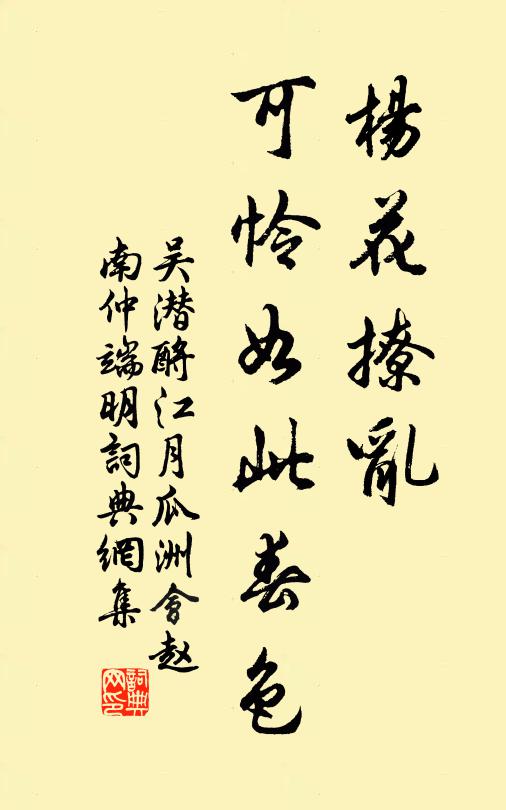 楊花撩亂
可怜如此春色
吴潜酹江月瓜洲會赵
南仲端明詞典網集
詞典网印